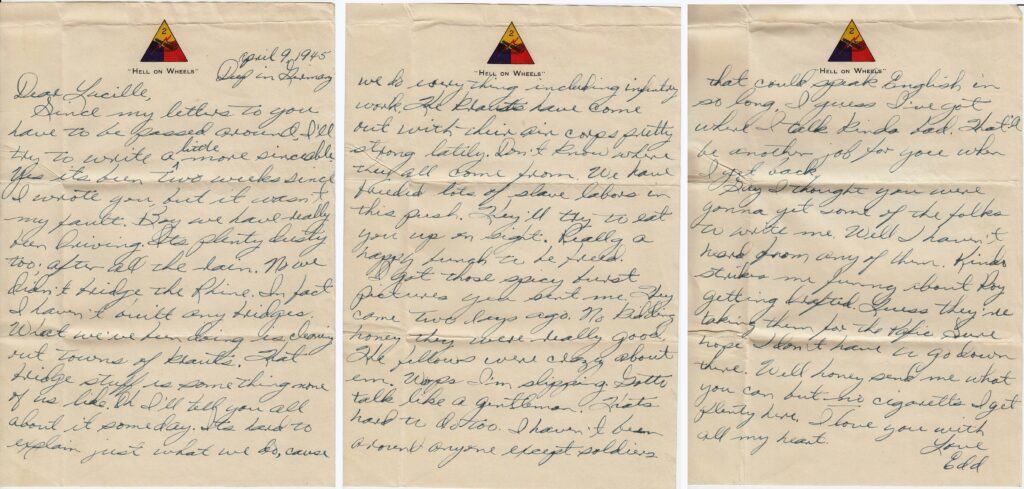 2
"HELL ON WHEELS"
April 9, 1945
Deep in Germany
Dear Lucille,
Since my letters to you
have to be passed around, I'll
try to write a little more sinceable
Yes its been two weeks since
I wrote you, but it wasn't
my fault. Boy we have really
been driving. Its plenty dusty
too, after all the rain. No we
didn't bridge the Rhine. In fact
I haven't built any bridges.
What we've been doing is cleaning
out towns of Krauts. That
bridge stuff is something none
of us like. I'll tell you all
about it someday. Its hard to
explain just what we do, cause
2
"HELL ON WHEELS"
we do everything including infantry
work. The Krauts have come
out with their air corps pretty
strong latily. Don't know where
they all come from. We have
freed lots of slave labors in
this push. They'll try to eat
you up on sight. Really a
happy bunch to be freed.
I got those spicy
pictures you sent me. They
came two days ago. No kidding
honey they were really good.
The fellows were crazy about
em. Wops I'm slipping. Gotto
talk like a gentleman. Thats
hard to do too. I haven't been
around anyone except soldiers
2
"HELL ON WHEELS"
that could speak English in
so long, I guess I've got
where I talk kinda bad. That'll
be another job for you when
I get back.
Say I thought you were
gonna get some of the folks
to write me. Well I haven't
heard from any of them. Kinda
strikes me funny about Roy
getting drafted. Guess they're
taking them for the Pacific. Sure
hope I don't have to go down
there. Well honey send me what
you can but no cigaretts I get
plenty here. I love you with
all my heart.
Love
Edd